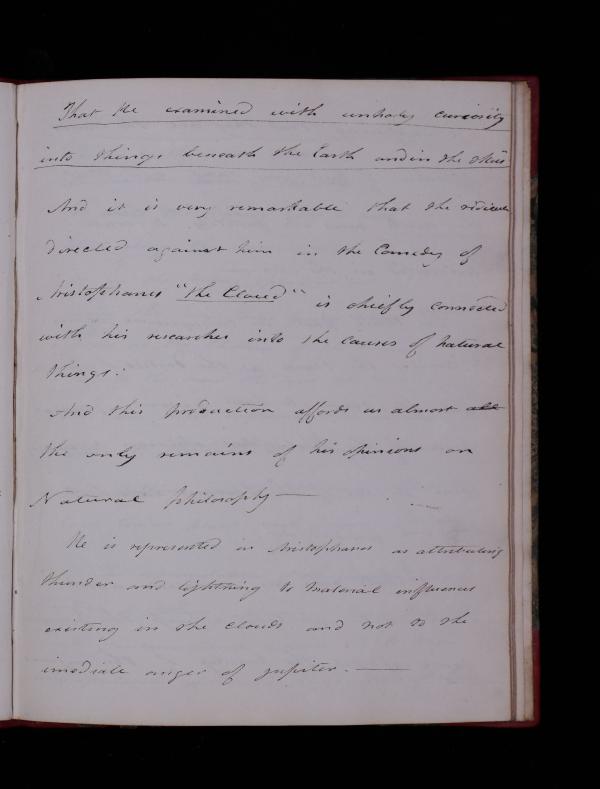 That He examined with unholy curiosity
into things beneath the Earth and in the skies
And it is very remarkable that the ridicule
directed against him in the Comedy of
Aristophanes "The Cloud" is chiefly connected
with his researches into the causes of natural
things.
And this production affords us almost all
the only remains of his opinions on
Natural philosophy —
He is represented in Aristophanes as attributing
thunder and lightning to material influences
existing in the clouds and not to the
imediate anger of jupiter. —